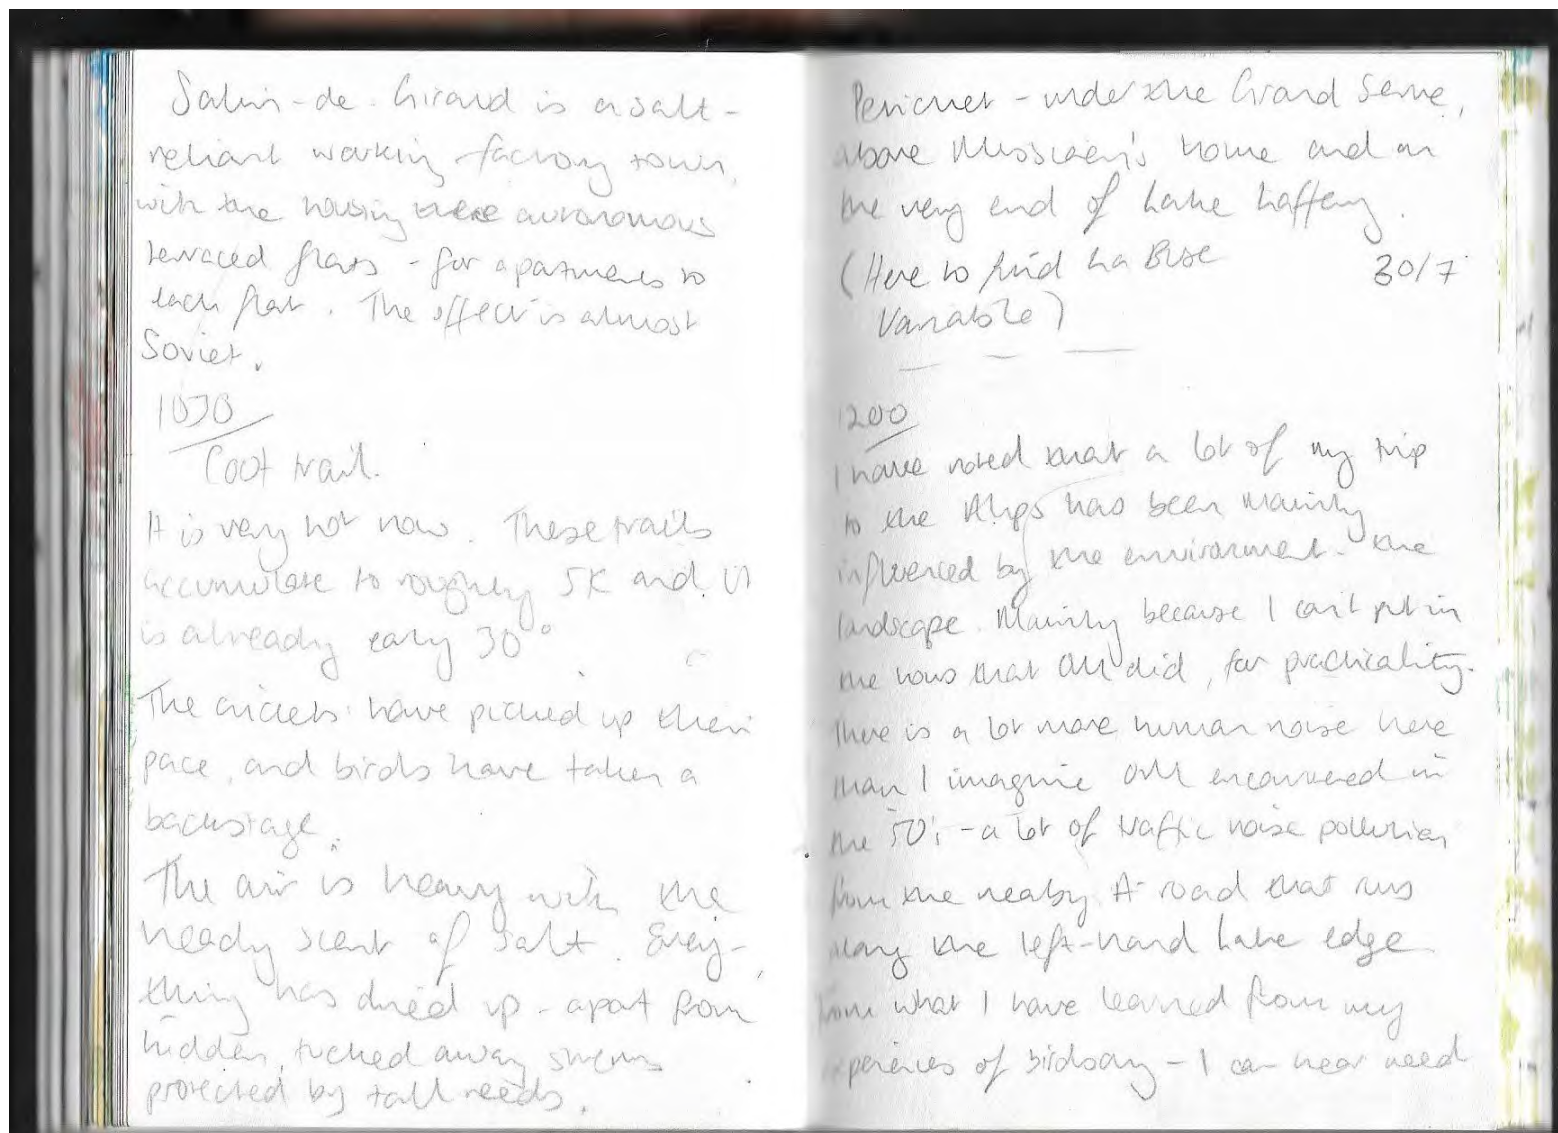 Salin-de-Giraud is a salt-
reliant working factory town,
with the housing there autonomous
terraced flats - for apartments to
each flat. The effect is almost
Soviet.
1030
Coot trail.
It is very hot now. These trails
accumulate to roughly 5K and it
is already early 30°
The crickets have picked up their
pace, and birds have taken a
backstage.
The air is heavy with the
heady scent of salt. Every-
thing has dried up - apart from
hidden, tucked away streams
protected by tall reeds.
Perichet - under the Grand Serre,
above Messiaen's home and on
the very end of Lake Laffery.
(Here to find La Buse 30/7
Variable)
1200
I have noted that a lot of my trip
to the Alps has been mainly
influenced by the environment - the
landscape. Mainly because I can't put in
the hours that OM did, for practicality.
There is a lot more human noise here
than I imagine OM encountered in
the 50's - a lot of traffic noise pollution
from the nearby A-road that runs
along the left-hand lake edge
From what I have learned from my
experiences of birdsong - I can hear reed